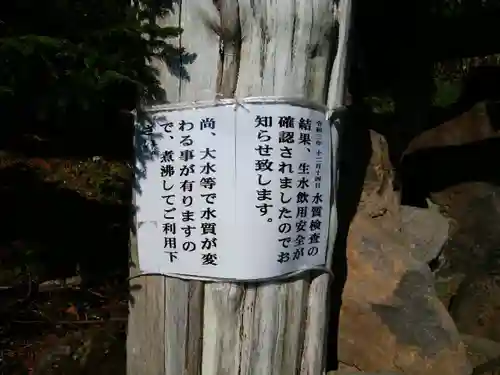 令和二年 十二月十四日 水質検査の
結果、生水飲用安全が
確認されましたのでお
知らせ致します。
尚、大水等で水質が変
わる事が有りますの
で、煮沸してご利用下
さ